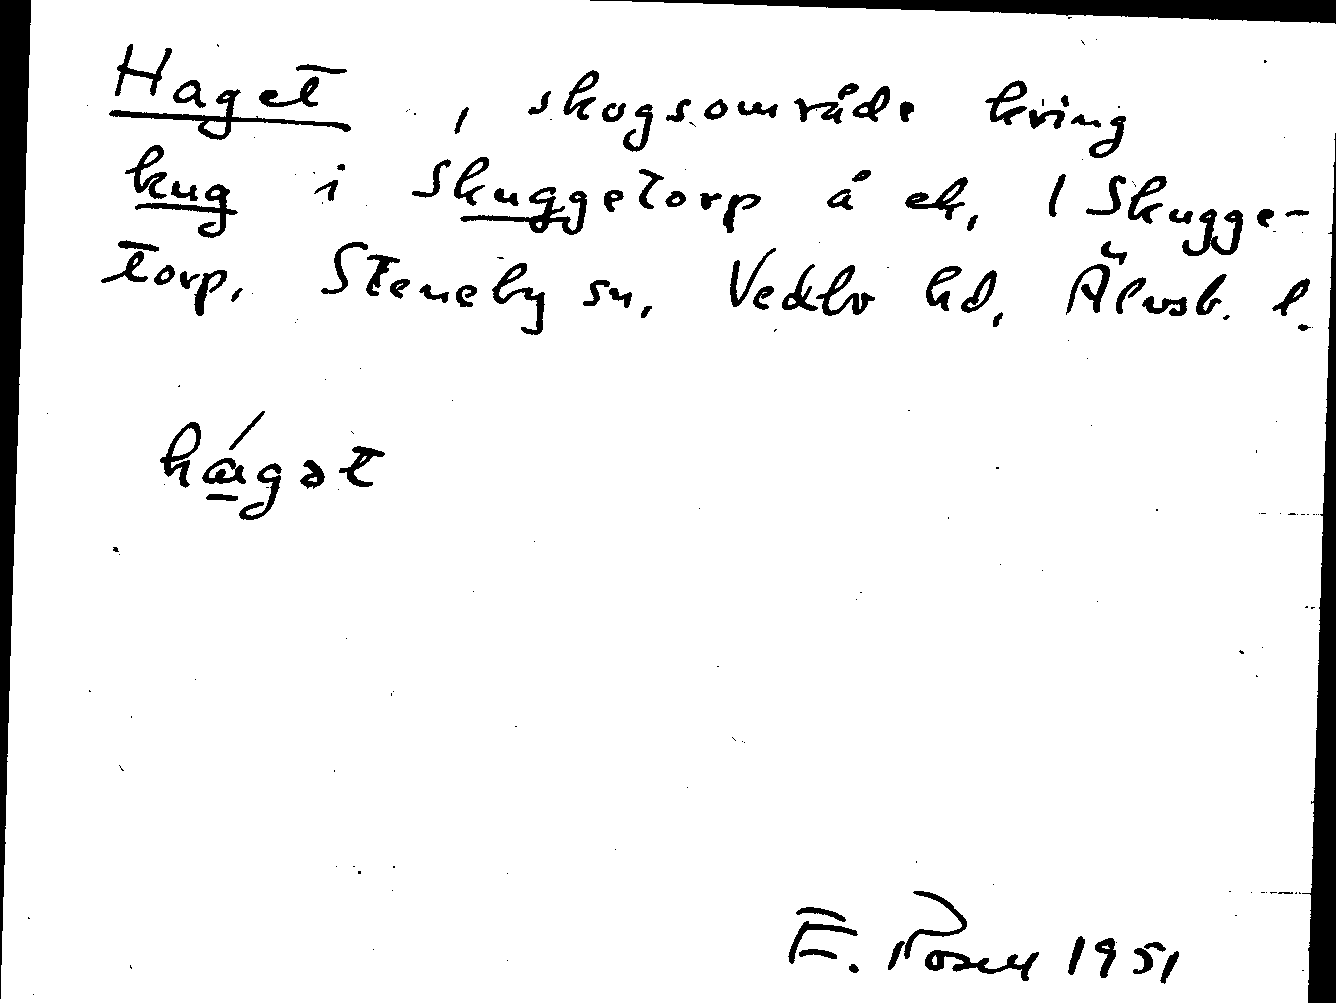 Haget, skogsområde kring
kug i Skuggetorp å ek, 1 Skugge-
torp, Steneby sn, Vedbo hd, Älvsb. l.
hágət
E. Rosell 1951